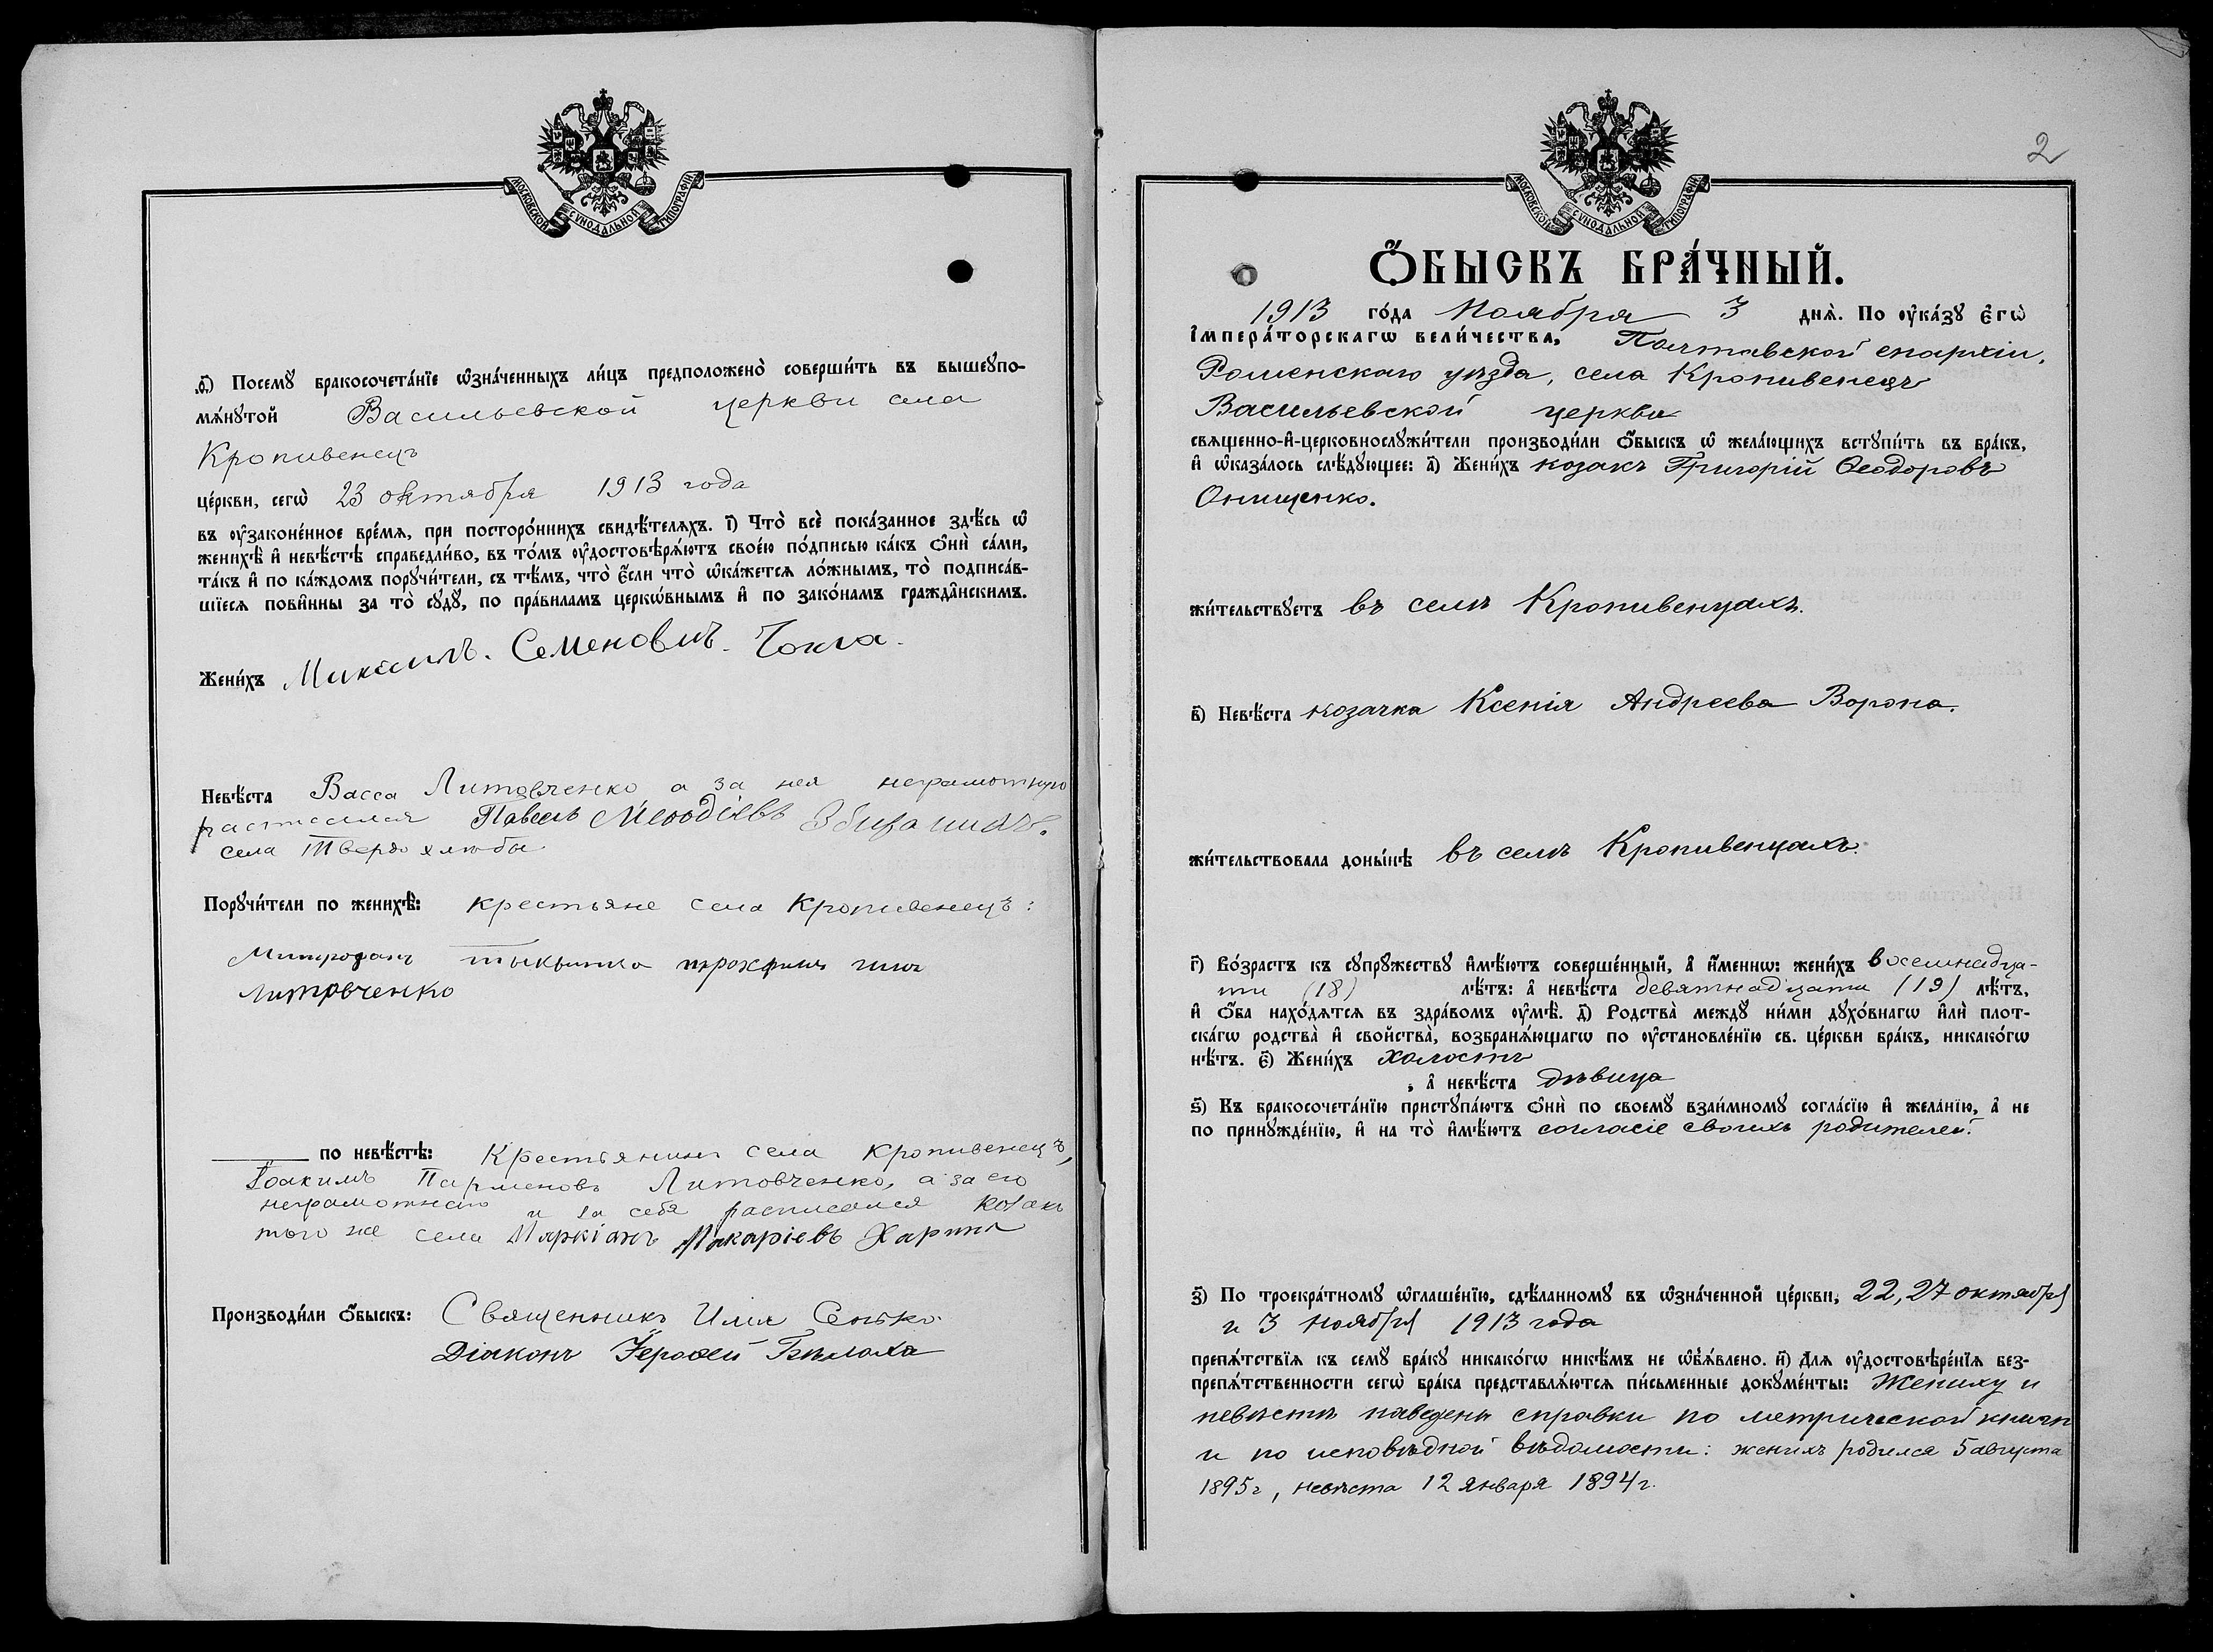 МОСКОВСКОЙ СѴНОДАЛЬНОЙ ТИПОГРАФІИ
ѳ҃) Посемꙋ̀ бракосочета́нїе ѡ҆зна́ченныхъ ли́цъ предположено̀ соверши́ть въ вышеꙋпо-
мѧ́нꙋтой Васильевской церкви села
Кропивенецъ
це́ркви, сегѡ̀ 23 октября 1913 года
въ ᲂу҆законе́нное вре́мѧ, при посторо́ннихъ свидѣ́телѧхъ. і҃) Что̀ всѐ пока́занное здѣ́сь ѡ҆
женихѣ̀ и҆ невѣ́стѣ справедли́во, въ то́мъ ᲂу҆достовѣрѧ́ютъ свое́ю по́дписью ка́къ ѻ҆нѝ са́ми,
та́къ и҆ по ка́ждомъ порꙋчи́тели, съ тѣ́мъ, что̀ є҆́сли что̀ ѡ҆ка́жетсѧ ло́жнымъ, то̀ подписа́в-
шїесѧ пови́нны за то̀ сꙋдꙋ̀, по пра́виламъ церкѡ́внымъ и҆ по зако́намъ гражда̑нскимъ.
Жени́хъ Максимъ. Семеновичъ.
Невѣ́ста Васса Литовченко а за нея неграмотную
расписался Павелъ Меѳодіевъ
села Твердохлюбы.
Порꙋчи́тели по женихѣ̀: крестьяне села Кропивенецъ:
Митрофанъ
Литовченко
по невѣ́стѣ: Крестьянинъ села Кропивенецъ,
Іоакимъ Парменовъ Литовченко, а за его
неграмотнаго и за себя расписался козакъ
того же села Маркіанъ Макаріевъ
Производи́ли ѻ҆́быскъ: Священникъ Илія Сенько.
Діаконъ Іероѳей
2
МОСКОВСКОЙ СѴНОДАЛЬНОЙ ТИПОГРАФІИ
Ѻ҆́БЫСКЪ БРА́ЧНЫЙ.
1913 го́да Ноября 3 днѧ̀. По ᲂу҆ка́зꙋ є҆гѡ̀
і҆мпера́торскагѡ вели́чества, Полтавской епархіи,
Роменскаго уѣзда, села Кропивенецъ
Васильевской церкви
свѧщенно-и҆-церковнослꙋжи́тели производи́ли ѻ҆́быскъ ѡ҆ жела́ющихъ встꙋпи́ть въ бра́къ,
и҆ ѡ҆каза́лось слѣ́дꙋющее: а҃) Жени́хъ козакъ Григорій Ѳеодоровъ
Онищенко.
жи́тельствꙋетъ въ селѣ Кропивенцахъ.
в҃) Невѣ́ста козачка Ксенія Андреева Ворона.
жи́тельствовала доны́нѣ въ селѣ Кропивенцахъ.
г҃) Во́зрастъ къ сꙋпрꙋжествꙋ̀ и҆мѣ́ютъ соверше́нный, а҆ и҆́меннѡ: жени́хъ восемнадца-
ти (18) лѣ́тъ: а҆ невѣ́ста девятнадцати (19) лѣ́тъ,
и҆ ѻ҆́ба нахо́дѧтсѧ въ здра́вомъ ᲂу҆мѣ̀. д҃) Родства̀ междꙋ̀ ни́ми дꙋхо́внагѡ и҆лѝ плот-
ска́гѡ родства̀ и҆ сво́йства, возбранѧ́ющагѡ по ᲂу҆становле́нїю св. це́ркви бра́къ, никако́гѡ
нѣ́тъ. є҃) Жени́хъ холостъ
, а҆ невѣ́ста дѣвица
ѕ҃) Къ бракосочета́нїю пристꙋпа́ютъ ѻ҆нѝ по своемꙋ̀ взаи́мномꙋ согла́сїю и҆ жела́нїю, а҆ не
по принꙋжде́нїю, и҆ на то̀ и҆мѣ́ютъ согласіе своихъ родителей.
з҃) По троекра́тномꙋ ѡ҆глаше́нїю, сдѣ́ланномꙋ въ ѡ҆зна́ченной це́ркви, 22, 27 октября
и 3 ноября 1913 года
препѧ́тствїѧ къ семꙋ̀ бра́кꙋ никако́гѡ никѣ́мъ не ѡ҆б̾ѧ́влено. и҃) Длѧ ᲂу҆достовѣре́нїѧ без-
препѧ́тственности сегѡ̀ бра́ка представлѧ́ютсѧ пи́сьменные докꙋме́нты: Жениху и
невѣстѣ наведены справки по метрической книгѣ
и по исповѣдной вѣдомости: женихъ родился 5 августа
1895 г, невѣста 12 января 1894 г.